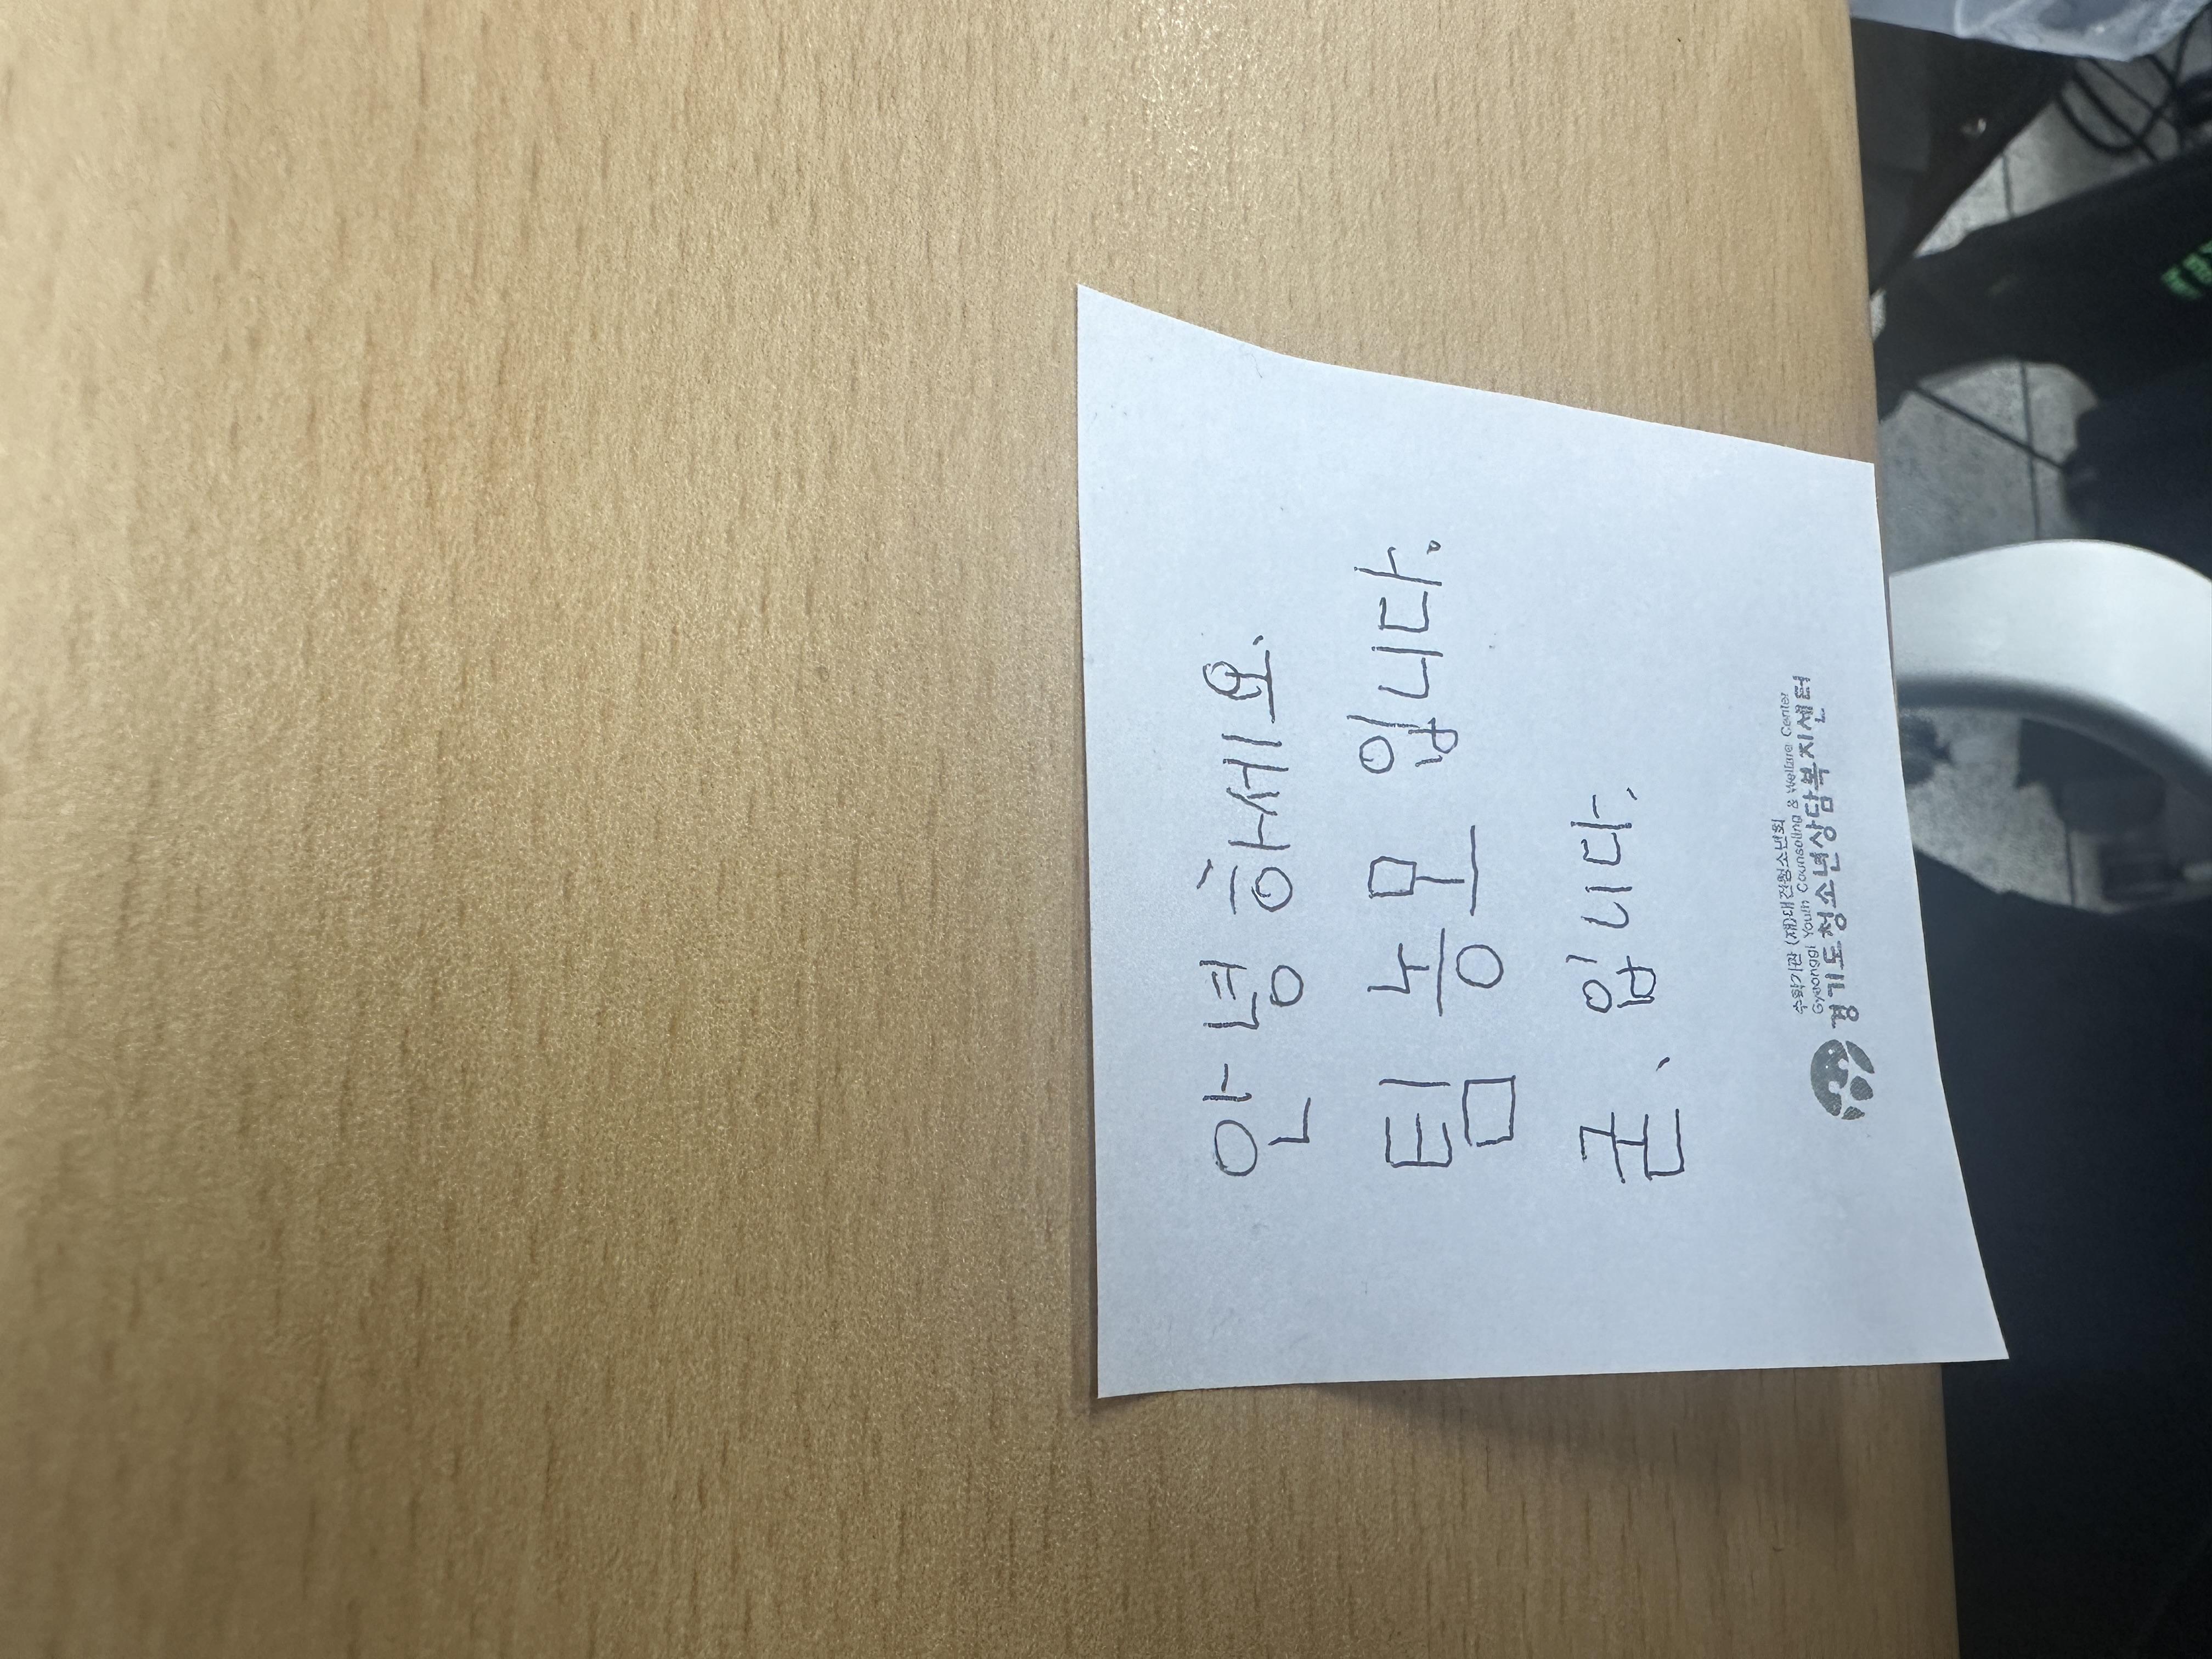 안녕하세요.
팀 농모 입니다.
굳、입니다.
수탁기관 (재)대건청소년회
Gyeonggi Youth Counseling & Welfare Center
경기도청소년상담복지센터